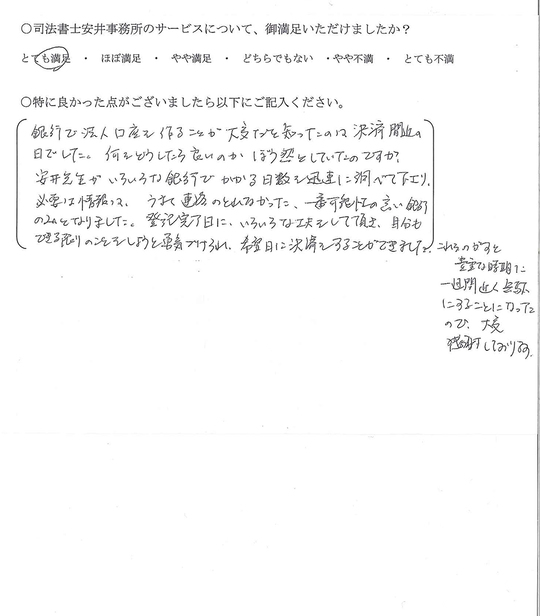 〇司法書士安井事務所のサービスについて、御満足いただけましたか？
とても満足 ・ ほぼ満足 ・ やや満足 ・ どちらでもない ・やや不満 ・ とても不満
〇特に良かった点がございましたら以下にご記入ください。
銀行で法人口座を作ることが大変だと知ったのは決済間近の
日でした。何をどうしたら良いのかぼう然としていたのですが、
安井先生がいろいろな銀行でかかる日数を迅速に調べて下さり、
必要な情報は、うまく連絡のとれなかった、一番可能性の高い銀行
のみとなりました。登記完了日に、いろいろな工夫をして頂き、自分も
できる限りのことをしようと勇気づけられ、希望日に決済をすることができました。
これをのがすと
貴重な時期に
一週間近く
にすることになった
ので、大変
感謝しております。